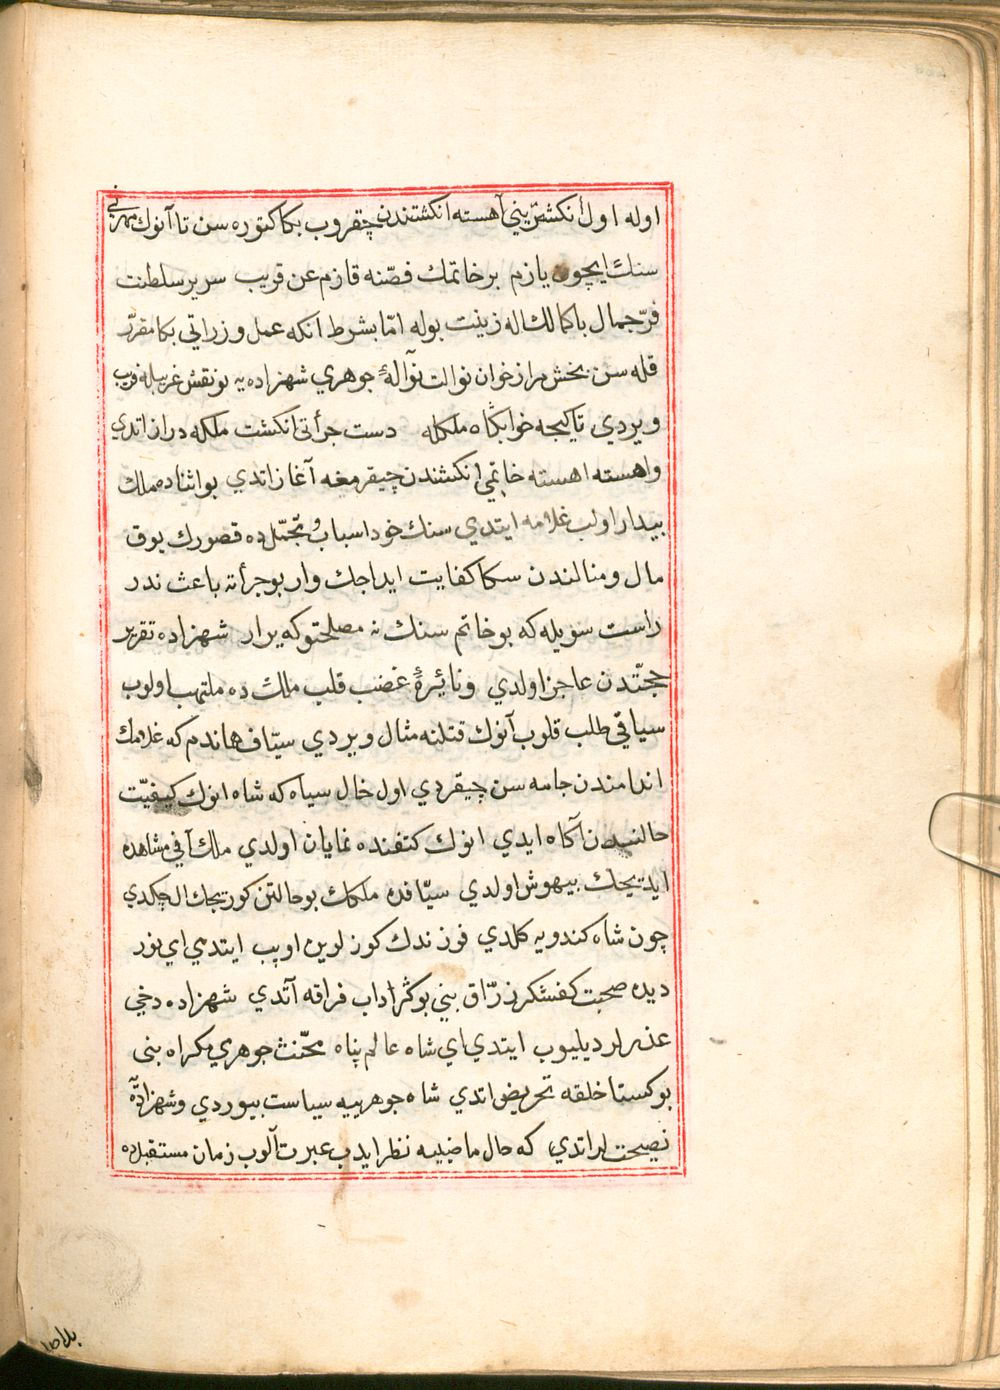 اوله اول انكشترینی آهسته انكشتندن چقروب بكا كتوره سن تا آنوك مهرنی
سنك ایچون یازم بر خاتمك فصّنه قازم عن قریب سریر سلطنت
فرّ جمال باكمالك اله زینت بوله امّا بشرط انكه عمل وزراتی بكا مقرّر
قله سن بخش مرا از خوان نوالت نوآلهٔ جوهری شهزاده یه بو نقش غریبله فریب
ویردی تا كیجه خوابكاه ملكله دست جرأتی انكشت ملكه دراز اتدی
واهسته اهسته خاتمی انكشتندن چیقرمغه آغاز اتدی بو اثناده ملك
بیدار اولب غلامه ایتدی سنك خود اسباب و تجمّلده قصورك یوق
مال ومنالندن سكا كفایت ایداجك وار بو جرأته باعث ندر
راست سویله كه بو خاتم سنك نه مصلحتوكه یرار شهزاده تقریر
حجّتدن عاجز اولدی ونائرهٔ غضب قلب ملك ده ملتهب اولوب
سیافی طلب قلوب آنوك قتلنه مثال ویردی سیّاف هماندم كه غلامك
اندامندن جامه سن چیقردی اول خال سیاه كه شاه انوك كیفیّت
حالندن آكاه ایدی انوك كتفنده نمایان اولدی ملك آنی مشاهده
ایدیجك بیهوش اولدی سیّاف ده ملكك بو حالتن كوریجك ال چكدی
چون شاه كندویه كلدی فرزندك كوزلرین اوپب ایتدی ای نور
دیده صحبت كفشكر زرّاق بنی بو كرداب فراقه آتدی شهزاده دخی
عذرلر دیلیوب ایتدی ای شاه عالم پناه مخّنث جوهری مكراه بنی
بو كستاخلقه تحریض اتدی شاه جوهرییه سیاست بیوردی وشهزادهٔ
نصیحتلر اتدی كه حال ماضییه نظر ایدب عبرت آلوب زمان مستقبلده